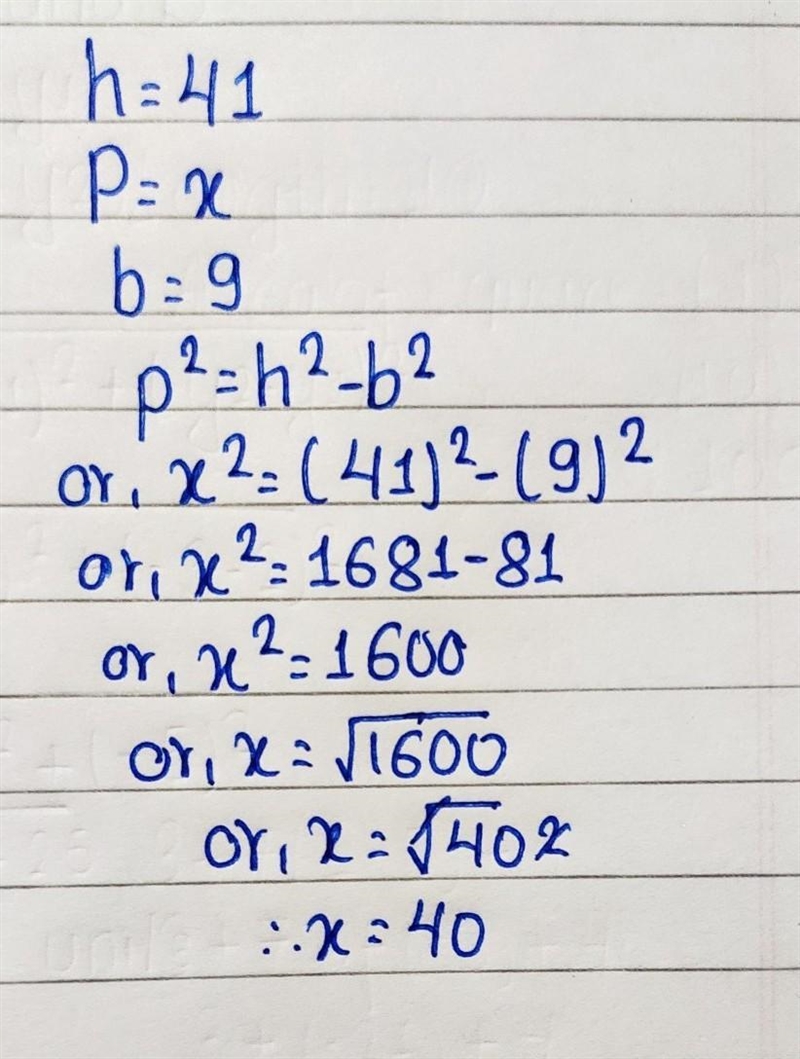 h = 41
P = x
b = 9
p² = h² - b²
or, x² = (41)² - (9)²
or, x² = 1681 - 81
or, x² = 1600
or, x = √1600
or, x = √40²
∴ x = 40